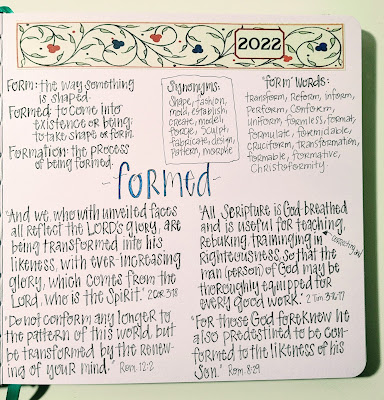 2022
FORM: the way something
is shaped.
Formed: to come into
existence or being:
to take shape or form.
Formation: the process
of being formed.
Synonyms:
Shape, fashion,
mold, establish,
create, model,
forge, sculpt,
fabricate, design,
pattern, morphie
"form" words:
transform, Reform, inform,
Perform, Conform,
uniform, formless, format,
formulate, formidable,
cruciform, transformation,
formable, formative,
Christoformity
-formed-
"And we, who with unveiled faces
all reflect the LORD'S glory, are
being transformed into his
likeness, with ever-increasing
glory, which comes from the
Lord, who is the Spirit." 2 Cor 3:18
"Do not conform any longer to
the pattern of this world, but
be transformed by the renew-
ing of your mind." Rom. 12:2
"All Scripture is God-breathed
and is useful for teaching,
rebuking, trainging in correcting, and
Righteousness, so that the
man (person) of God may be
thoroughly equipped for
every good work." 2 Tim 3:16-17
"For those God foreknew he
also predestined to be con-
formed to the likeness of his
Son." Rom. 8:29